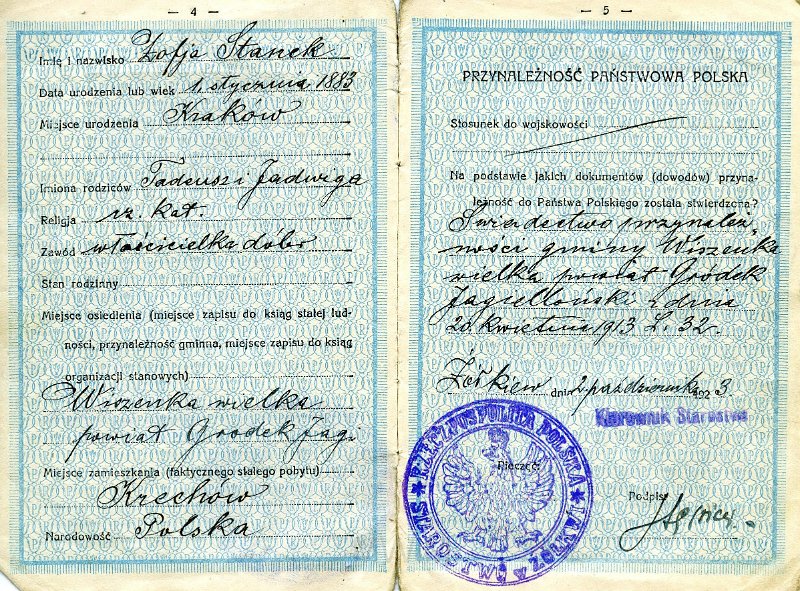 — 4 —
Imię i nazwisko Zofja Stanek
Data urodzenia lub wiek 1. stycznia 1883
Miejsce urodzenia Kraków
Imiona rodziców Tadeusz i Jadwiga
Religja rz. kat.
Zawód właścicielka dóbr
Stan rodzinny
Miejsce osiedlenia (miejsce zapisu do ksiąg stałej lud-
ności, przynależność gminna, miejsce zapisu do ksiąg
organizacji stanowych)
Wiszenka wielka
powiat Gródek Jag.
Miejsce zamieszkania (faktycznego stałego pobytu)
Krechów
Narodowość Polska
— 5 —
PRZYNALEŻNOŚĆ PAŃSTWOWA POLSKA
Stosunek do wojskowości
Na podstawie jakich dokumentów (dowodów) przyna-
leżność do Państwa Polskiego została stwierdzona?
Świadectwo przynależ-
ności gminy Wiszenka
wielka powiat Gródek
Jagielloński z dnia
20. kwietnia 1913 L. 32.
Żółkiew dnia 2 października 1923
Kierownik Starostwa
Pieczęć:
RZECZPOSPOLITA POLSKA
STAROSTWO
Podpis